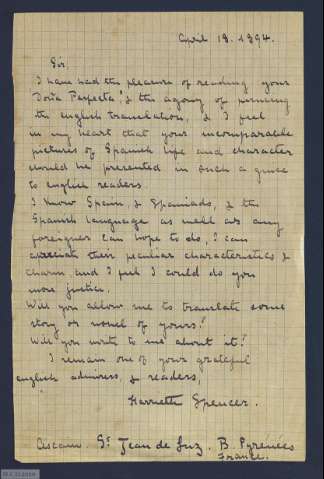 April 19. 1894.
Sir,
I have had the pleasure of reading your
Doña Perfecta, & the agony of perusing
the english translation, & I feel
in my heart that your incomparable
pictures of Spanish life and character
should be presented in such a guise
to english readers.
I know Spain, & Spaniards, & the
Spanish language as well as any
foreigner can hope to do, I can
their peculiar characteristics &
charm and I feel I could do you
more justice.
Will you allow me to translate some
story or novel of yours?
Will you write to me about it?
I remain one of your grateful
english admirers, & readers,
Harriette Spencer.
Ascain. St Jean de Luz. B. Pyrenées
France.